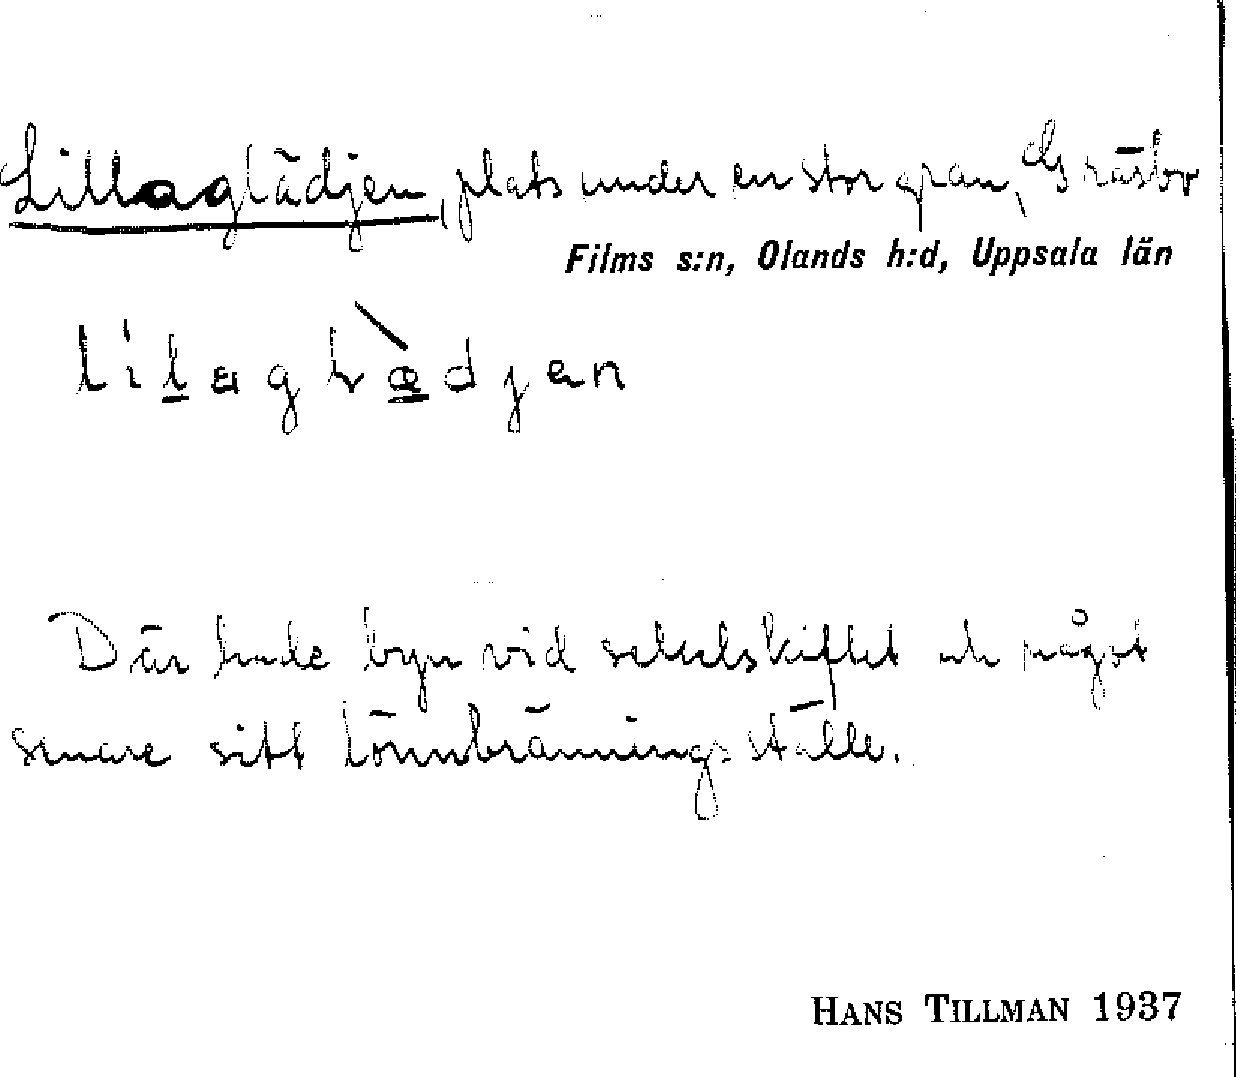 Lillaglädjen, plats under en stor gran, Gräsbo
Films s:n, Olands h:d, Uppsala län
lilagLædjen
Där hade byn vid sekelskiftet och något
senare sitt lönnbränningsställe.
HANS TILLMAN 1937